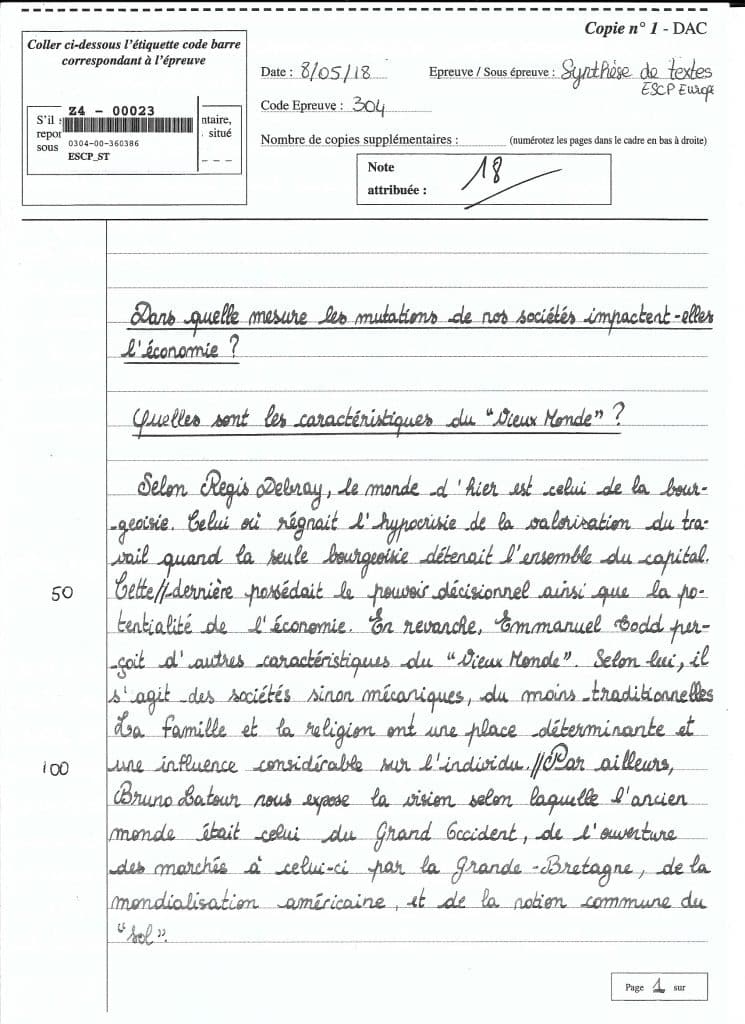 Copie n° 1 - DAC
Coller ci-dessous l'étiquette code barre
correspondant à l'épreuve
Z4 - 00023
S'il
repor
sous
ntaire,
situé
0304-00-360386
ESCP_ST
Date : 8/05/18
Epreuve / Sous épreuve : Synthèse de textes
ESCP Europe
Code Epreuve : 304
Nombre de copies supplémentaires :
(numérotez les pages dans le cadre en bas à droite)
Note
attribuée :
18
Dans quelle mesure les mutations de nos sociétés impactent-elles
l'économie ?
Quelles sont les caractéristiques du "Vieux Monde" ?
Selon Regis Debray, le monde d'hier est celui de la bour-
-geoisie. Celui où régnait l'hypocrisie de la valorisation du tra-
vail quand la seule bourgeoisie détenait l'ensemble du capital.
50
Cette//-dernière possédait le pouvoir décisionnel ainsi que la po-
tentialité de l'économie. En revanche, Emmanuel Todd per-
-çoit d'autres caractéristiques du "Vieux Monde". Selon lui, il
s'agit des sociétés sinon mécaniques, du moins traditionnelles
La famille et la religion ont une place déterminante et
100
une influence considérable sur l'individu.//Par ailleurs,
Bruno Latour nous expose la vision selon laquelle l'ancien
monde était celui du Grand Occident, de l'ouverture
des marchés à celui-ci par la Grande-Bretagne, de la
mondialisation américaine, et de la notion commune du
"sol".
Page 1 sur